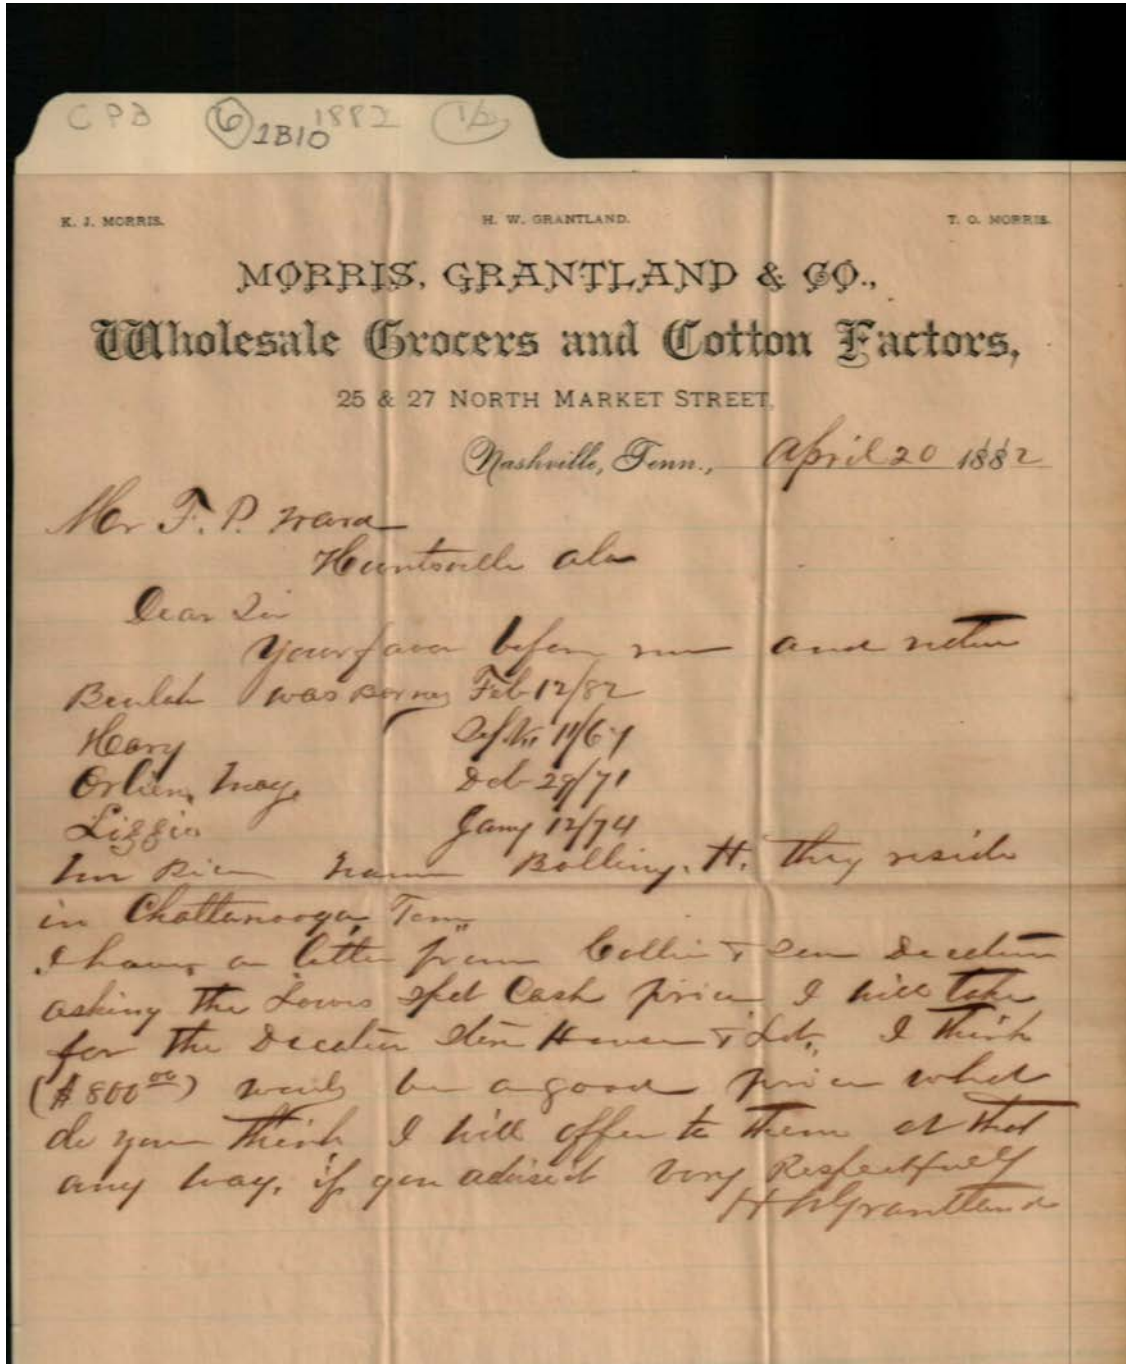 CPB 6 1B10 1882 1/2
K. J. MORRIS. H. W. GRANTLAND. T. O. MORRIS.
MORRIS, GRANTLAND & CO.,
Wholesale Grocers and Cotton Factors,
25 & 27 NORTH MARKET STREET,
Nashville, Tenn., April 20 1882
Mr F. P. Ward
Huntsville Ala
Dear Sir
Your favor before me and
Beulah was Born Feb 12/82
Harry 11/67
May, Dcb 29/71
Lizzie Jany 12/74
name Bolling. H. they reside
in Chattanooga, Tenn
I have a letter from Collin & Decatur
asking the Lowes Spot Cash price I will take
for the Decatur Store House & Lot, I think
($800 00) would be a good price what
do you think I will offer to them at that
any way, if you advise it Very Respectfully
H W Grantland